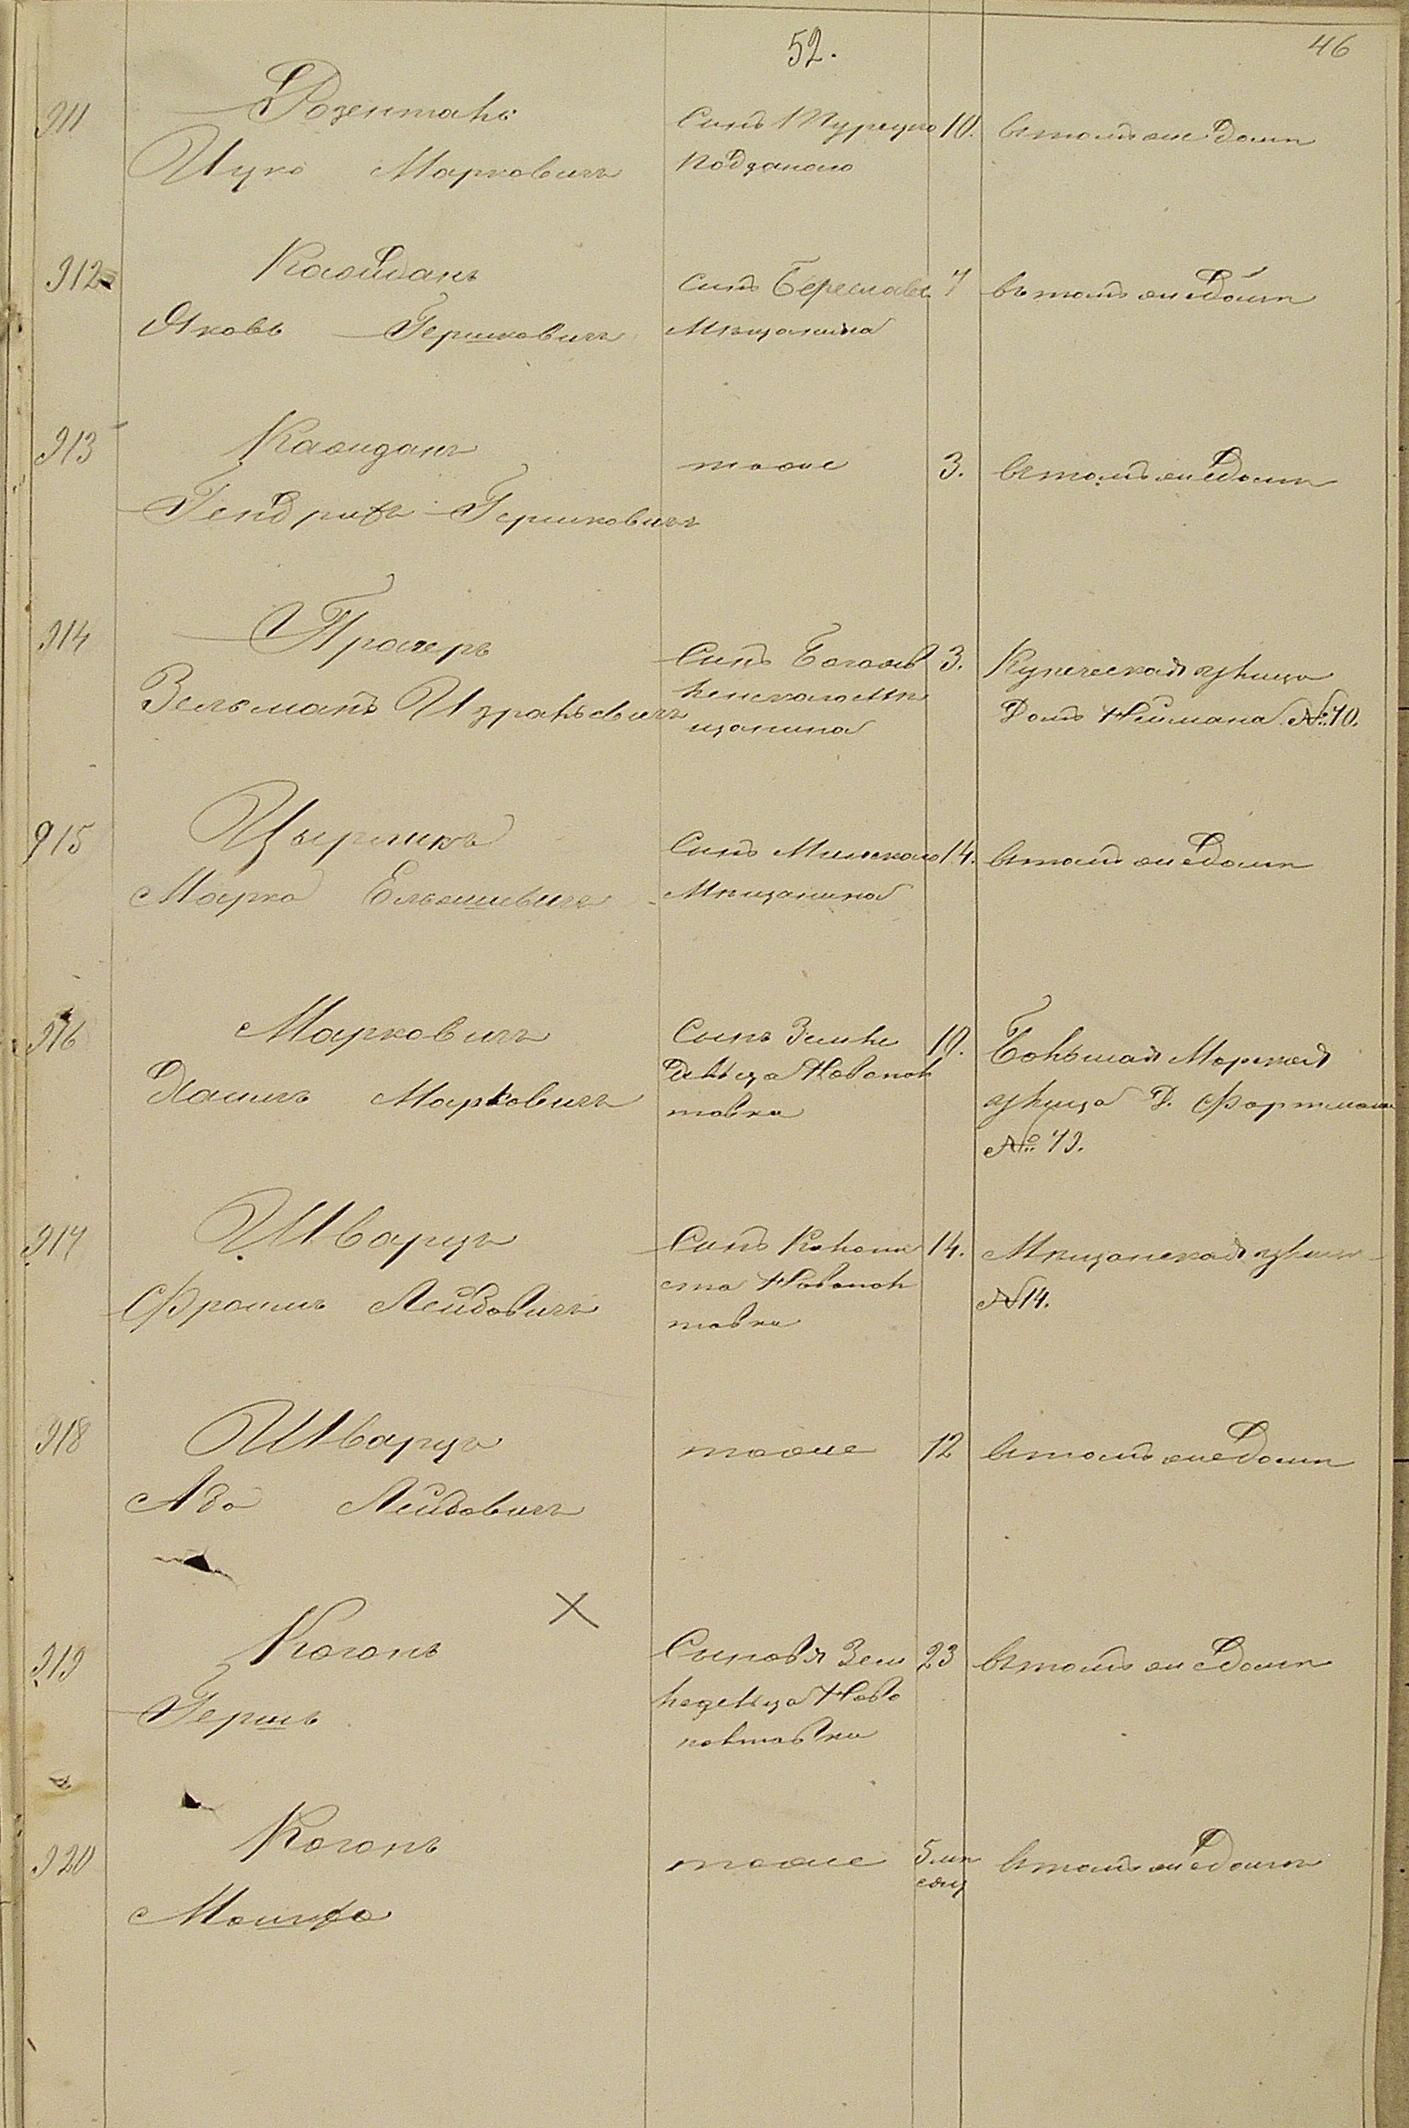 52.
46
911
Розенталь
Ицко Марковичъ
Сынъ Турецко
подданого
10.
въ томъ же домѣ
912
Кайданъ
Яковъ Гершковичъ
Сынъ Береславс
мѣщанина
7
въ томъ же домѣ
913
Гершковичъ
тоже
3.
въ томъ же домѣ
914
Прагеръ
Зельманъ Израильевичъ
Сынъ
мѣ
щанина
3.
Купеческая улица
Домъ Неймана №70.
915
Цырлинъ
Марко
Сынъ Минскаго
мѣщанина
14.
въ томъ же домѣ
916
Марковичъ
Хаимъ Марковичъ
Сынъ Земле
дѣльца Новопол
тавки
10.
Большая Морская
улица Д. Фортмана
№ 79.
917
Шварцъ
Фроимъ Лейбовичъ
Сынъ Колони
ста Новопол
тавки
14.
Мѣщанская улица
№14.
918
Шварцъ
Аба Лейбовичъ
тоже
12
въ томъ же домѣ
919
Коганъ
Гершъ
Сыновья Зем
ледельца Ново
полтавки
23
въ томъ же домѣ
920
Коганъ
Мошко
тоже
5 мѣ
сяц
въ томъ же домѣ